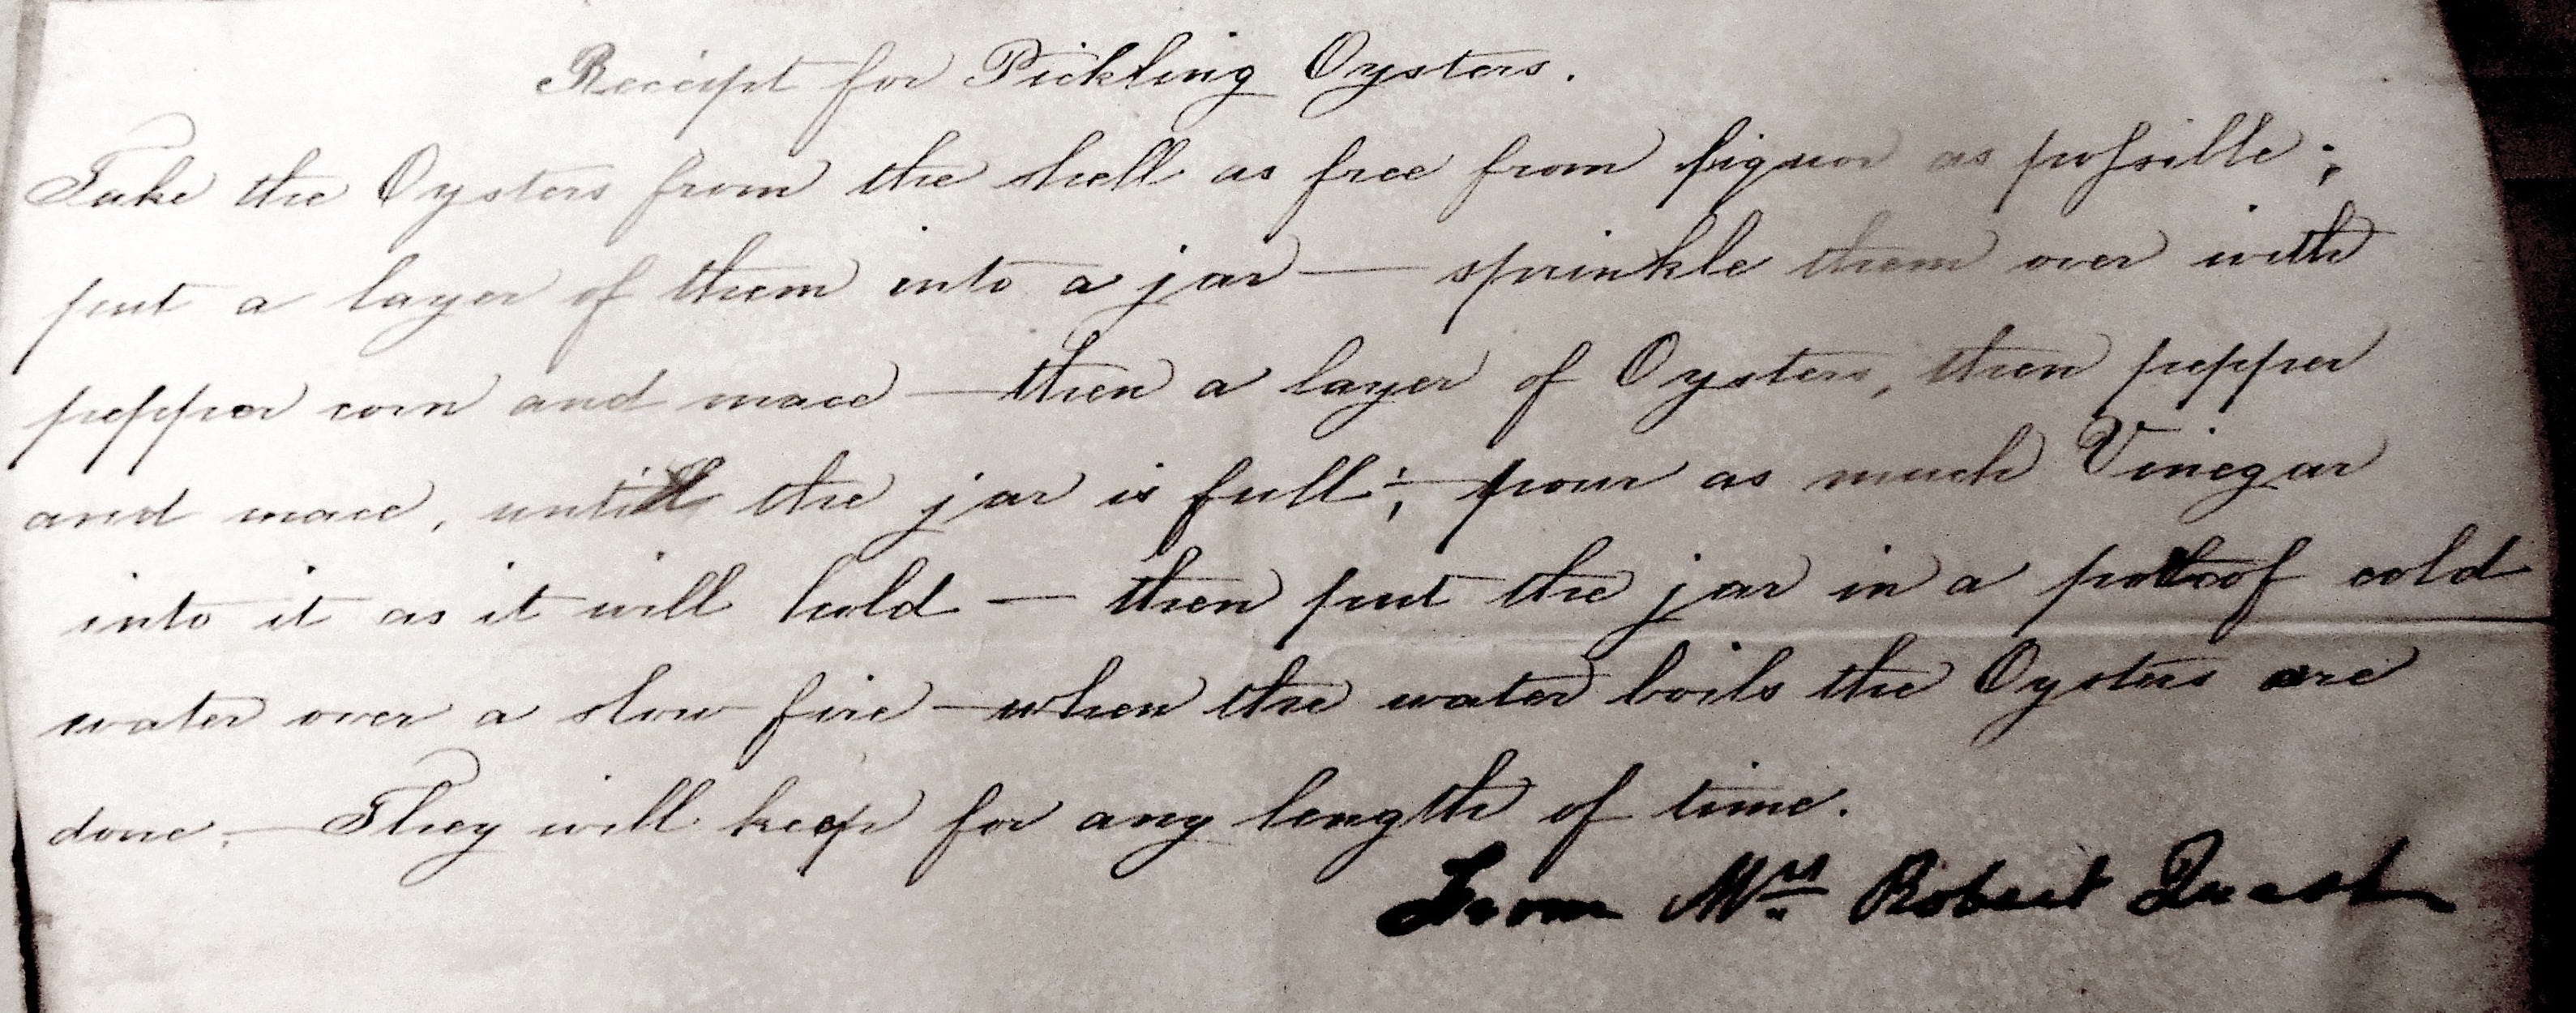 Receipt for Pickling Oysters.
Take the Oysters from the shell as free from liquor as poſsible;
put a layer of them into a jar — sprinkle them over with
pepper corn and mace — then a layer of Oysters, then pepper
and mace, until the jar is full; pour as much Vinegar
into it as it will hold — then put the jar in a pot of cold
water over a slow fire — when the water boils the Oysters are
done. — They will keep for any length of time.
From Mrs Robert